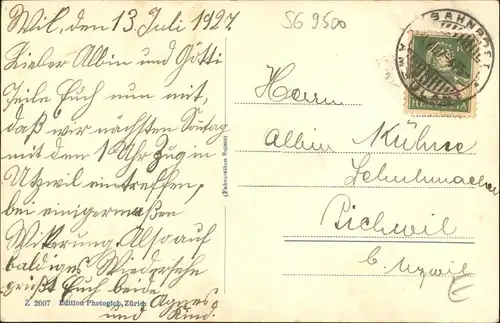 Wil, den 13 Juli 1927
SG 9500
BAHNPOST
HELVETIA
Lieber Albin und Götti
Teile Euch nun mit,
daß wir nächsten Sonntag
mit dem 1 Uhr Zug in
Utzwil eintreffen,
bei einigermaßen
Witterung. Also auf
baldiges Wiedersehn
grüßt Euch beide
Agnes
und Kind.
Herrn
Albin Kühne
Schuhmacher
Bichwil
b. Uzwil
(Fabrication Suisse)
Z 2007 Edition Photoglob, Zürich